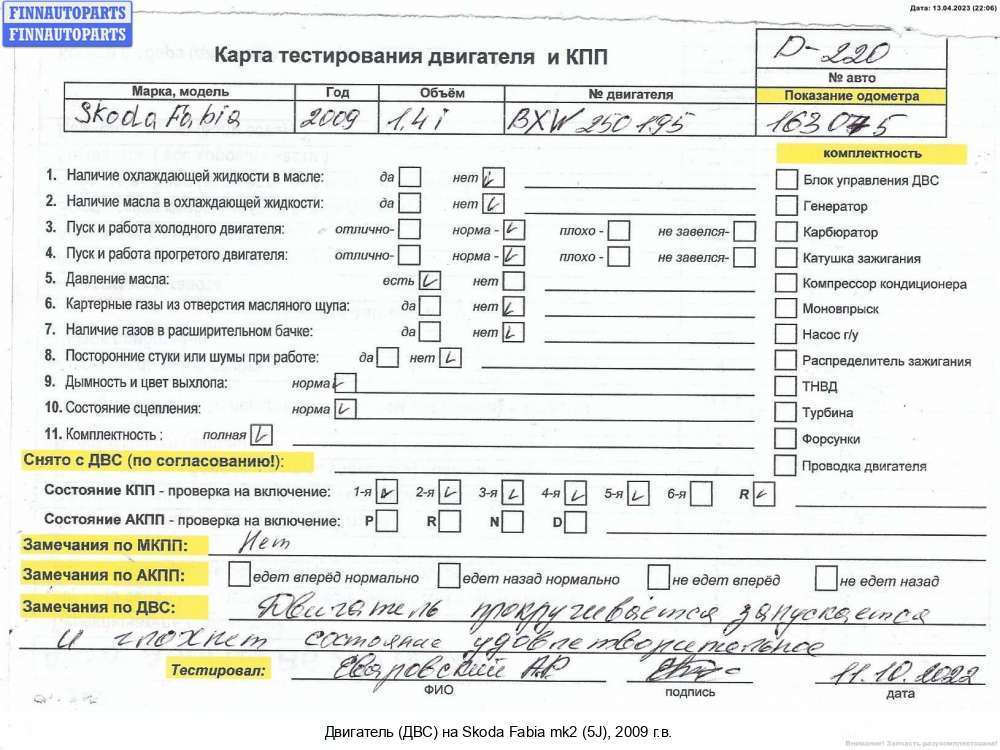 Дата: 13.04.2023 (22:06)
FINNAUTOPARTS
FINNAUTOPARTS
Карта тестирования двигателя и КПП
D-220
№ авто
Марка, модель Год Объём № двигателя Показание одометра
Skoda Fabia 2009 1,4 i BXW 250195 163075
комплектность
1. Наличие охлаждающей жидкости в масле: да нет
Блок управления ДВС
2. Наличие масла в охлаждающей жидкости: да нет
Генератор
3. Пуск и работа холодного двигателя: отлично- норма - плохо - не завелся-
Карбюратор
4. Пуск и работа прогретого двигателя: отлично- норма - плохо - не завелся-
Катушка зажигания
5. Давление масла: есть нет
Компрессор кондиционера
6. Картерные газы из отверстия масляного щупа: да нет
Моновпрыск
7. Наличие газов в расширительном бачке: да нет
Насос г/у
8. Посторонние стуки или шумы при работе: да нет
Распределитель зажигания
9. Дымность и цвет выхлопа: норма
ТНВД
10. Состояние сцепления: норма
Турбина
11. Комплектность : полная
Форсунки
Снято с ДВС (по согласованию!):
Проводка двигателя
Состояние КПП - проверка на включение: 1-я 2-я 3-я 4-я 5-я 6-я R
Состояние АКПП - проверка на включение: P R N D
Замечания по МКПП: Нет
Замечания по АКПП: едет вперёд нормально едет назад нормально не едет вперёд не едет назад
Замечания по ДВС: Двигатель прокручивается запускается
и глохнет состояние удовлетворительное
Тестировал: 11.10.2022
ФИО подпись дата
Двигатель (ДВС) на Skoda Fabia mk2 (5J), 2009 г.в.
Внимание! Запчасть разукомплектована!